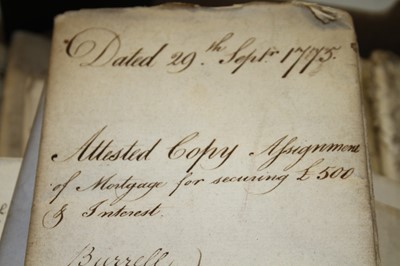 Dated 29th Septr 1775.
Attested Copy Assignment
of Mortgage for securing £500
& Interest.
Burrell